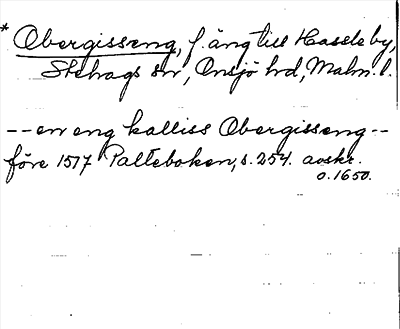 * Obergisseng, f. äng till Hassleby,
Stehags sn, Onsjö hd, Malm. l.
-- en eng kalliss Obergisseng --
före 1517 Palteboken, s. 254. avskr.
o. 1650.